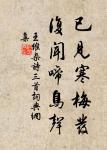 已見寒梅發
復聞啼鳥聲
王維集詩三首詞典網
集